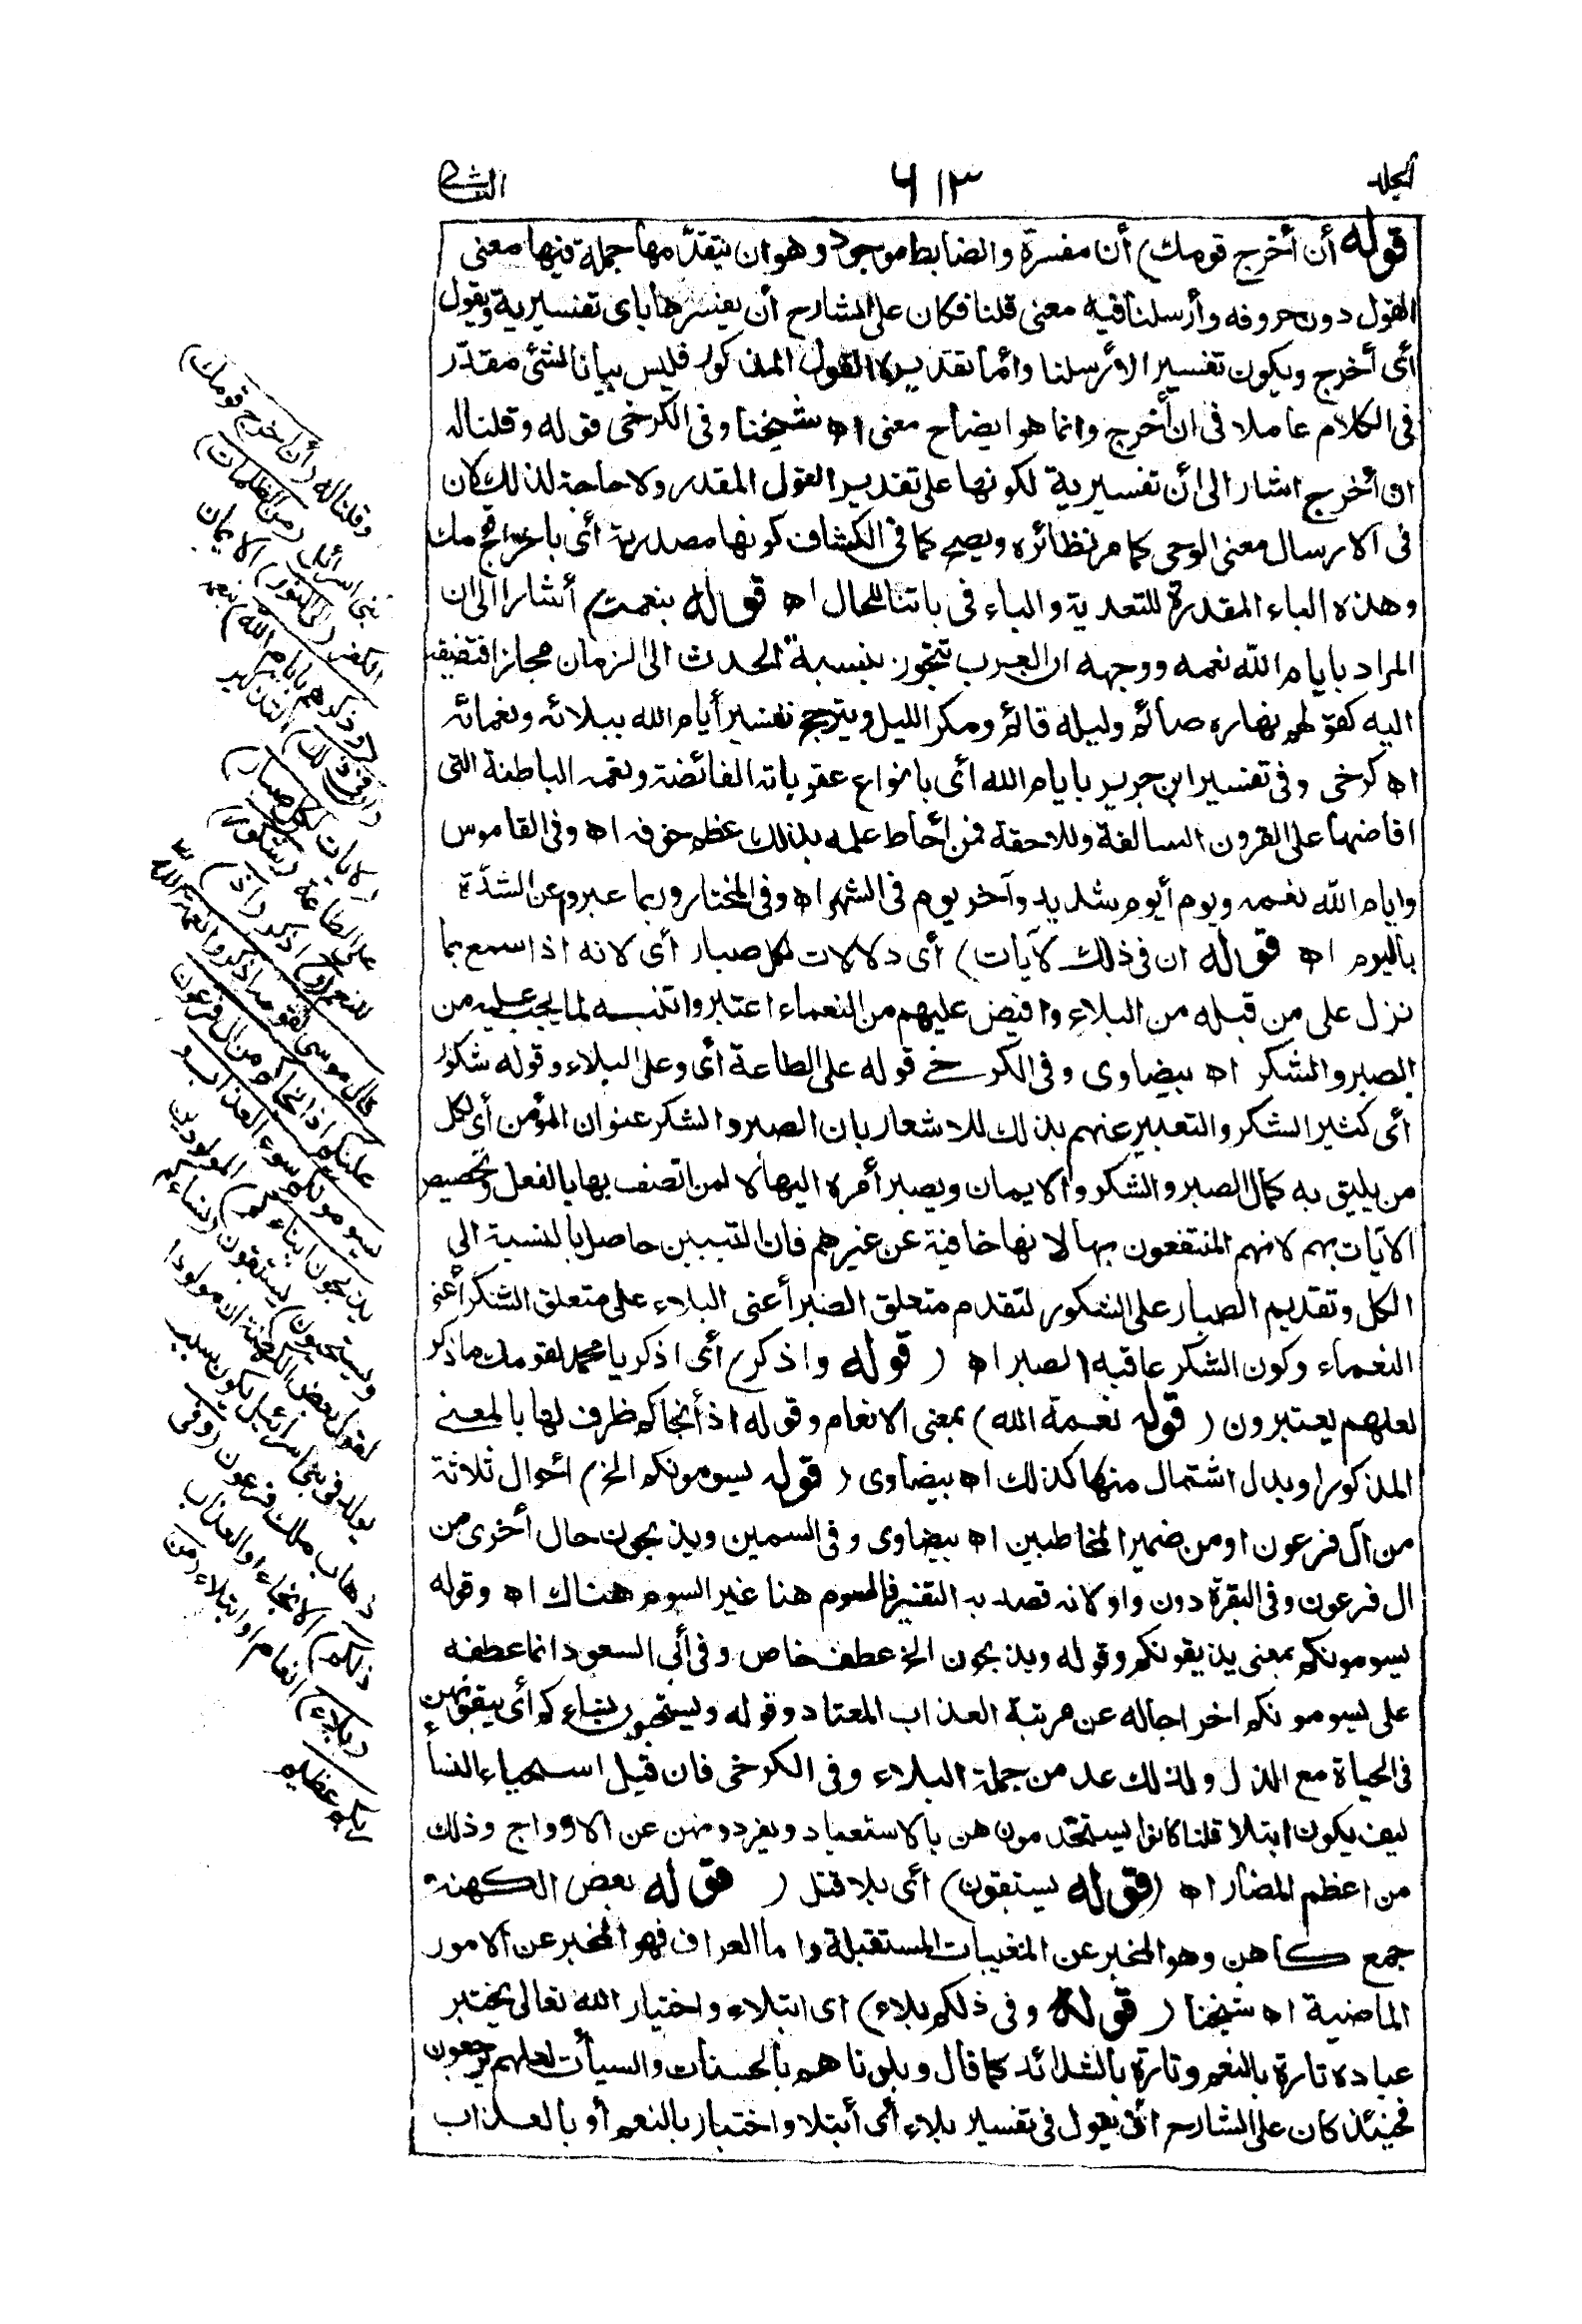 الجلد ٦١٣ الثانى
قوله أن أخرج قومك) أن مفسرة والضابط موجود وهو ان يتقدّمها جملة فيها معنى
القول دون حروفه وأرسلنا فيه معنى قلنا فكان على الشارح أن يفسرها بأى تفسيرية ويقول
أى أخرج ويكون تفسيرا لأرسلنا وأما تقديره القول المذكور فليس بيانا لشئ مقدّر
فى الكلام عاملا فى ان أخرج وانما هو ايضاح معنى اه شيخنا وفى الكرخى قوله وقلنا له
ان أخرج اشار الى أن تفسيرية لكونها على تقدير القول المقدر ولا حاجة لذلك لان
فى الارسال معنى الوحى كما مر نظائره ويصح كما فى الكشاف كونها مصدرية أى باخراج قومك
وهذه الباء المقدرة للتعدية والباء فى باياتنا للحال اه قوله بنعمه) أشار الى ان
المراد بايام الله نعمه ووجهه ان العرب تتجوز بنسبة الحدث الى الزمان مجازا فتضيفه
اليه كقولهم نهاره صائم وليله قائم ومكر الليل ويترجح تفسير أيام الله ببلائه ونعمائه
اه كرخى وفى تفسير ابن جرير بايام الله أى بانواع عقوباته الفائضة ونعمه الباطنة التى
افاضها على القرون السالفة وللاحقة فمن أحاط علمه بذلك عظم خوفه اه وفى القاموس
وايام الله نعمه ويوم أيوم شديد وآخر يوم فى الشهر اه وفى المختار وربما عبروا عن الشدّة
باليوم اه قوله ان فى ذلك لآيات) أى دلالات لكل صبار أى لانه اذا سمع بما
نزل على من قبله من البلاء وافيض عليهم من النعماء اعتبر وانتبه لما يجب عليه من
الصبر والشكر اه بيضاوى وفى الكرخى قوله على الطاعة أى وعلى البلاء وقوله شكور
أى كثير الشكر والتعبير عنهم بذلك للاشعار بان الصبر والشكر عنوان المؤمن أى لكل
من يليق به كمال الصبر والشكر والايمان ويصير أمره اليها لا لمن اتصف بها بالفعل وتخصيص
الآيات بهم لانهم المنتفعون بها لا نها خافية عن غيرهم فان التبيين حاصل بالنسبة الى
الكل وتقديم الصبار على الشكور لتقدم متعلق الصبر أعنى البلاء على متعلق الشكر أعنى
النعماء وكون الشكر عاقبة الصبر اه (قوله واذكر) أى اذكر يا محمد لقومك ما ذكر
لعلهم يعتبرون (قوله نعمة الله) بمعنى الانعام وقوله اذ أنجاكم ظرف لها بالمعنى
المذكور او بدل اشتمال منها كذلك اه بيضاوى (قوله يسومونكم الخ) احوال ثلاثة
من آل فرعون او من ضمير المخاطبين اه بيضاوى وفى السمين ويذبحون حال أخرى من
ال فرعون وفى البقرة دون واو لانه قصد به التفسير فالسوم هنا غير السوم هناك اه وقوله
يسومونكم بمعنى يذيقونكم وقوله ويذبحون الخ عطف خاص وفى أبى السعود انما عطفه
على يسومونكم اخراجا له عن مرتبة العذاب المعتاد وقوله ويستحيون نساءكم أى يبقونهن
فى الحياة مع الذل ولذلك عد من جملة البلاء وفى الكرخى فان قيل استحياء النسأ
كيف يكون ابتلا قلنا كانوا يستخدمونهن بالاستعباد ويفردونهن عن الازواج وذلك
من اعظم المضار اه (قوله يستبقون) أى بلا قتل (قوله بعض الكهنة
جمع كاهن وهو المخبر عن المغيبات المستقبلة واما العراف فهو المخبر عن الامور
الماضية اه شيخنا (قوله وفى ذلكم بلاء) اى ابتلاء واختبار الله تعالى يختبر
عباده تارة بالنعم وتارة بالشدائد كما قال وبلوناهم بالحسنات والسيأت لعلهم يرجعون
فحينئذ كان على الشارح ان يقول فى تفسير بلاء أى أبتلا واختبار بالنعم أو بالعذاب
وقلنا له (أن أخرج قومك)
بنى اسرائل (من الظلمات)
الكفر (الى النور) الايمان
(وذكرهم بايام الله) بنعمه
(ان فى ذلك) التذكير
(لايات لكل صبار)
على الطاعة (شكور)
للنعم (و) اذكر (اذ
قال موسى لقومه اذكروا نعمة الله
عليكم اذ انجاكم من ال فرعون
يسومونكم سوء العذاب و
يذبحون ابناءكم) المولودين
ويستحيون) يستبقون (نساءكم
لقول بعض الكهنة ان مولودا
يولد فى بنى اسرائيل يكون سبب
ذهاب ملك فرعون (وفى
ذلكم) الانجاء او العذاب
(بلاء) انعام او ابتلاء (من
ربكم عظيم